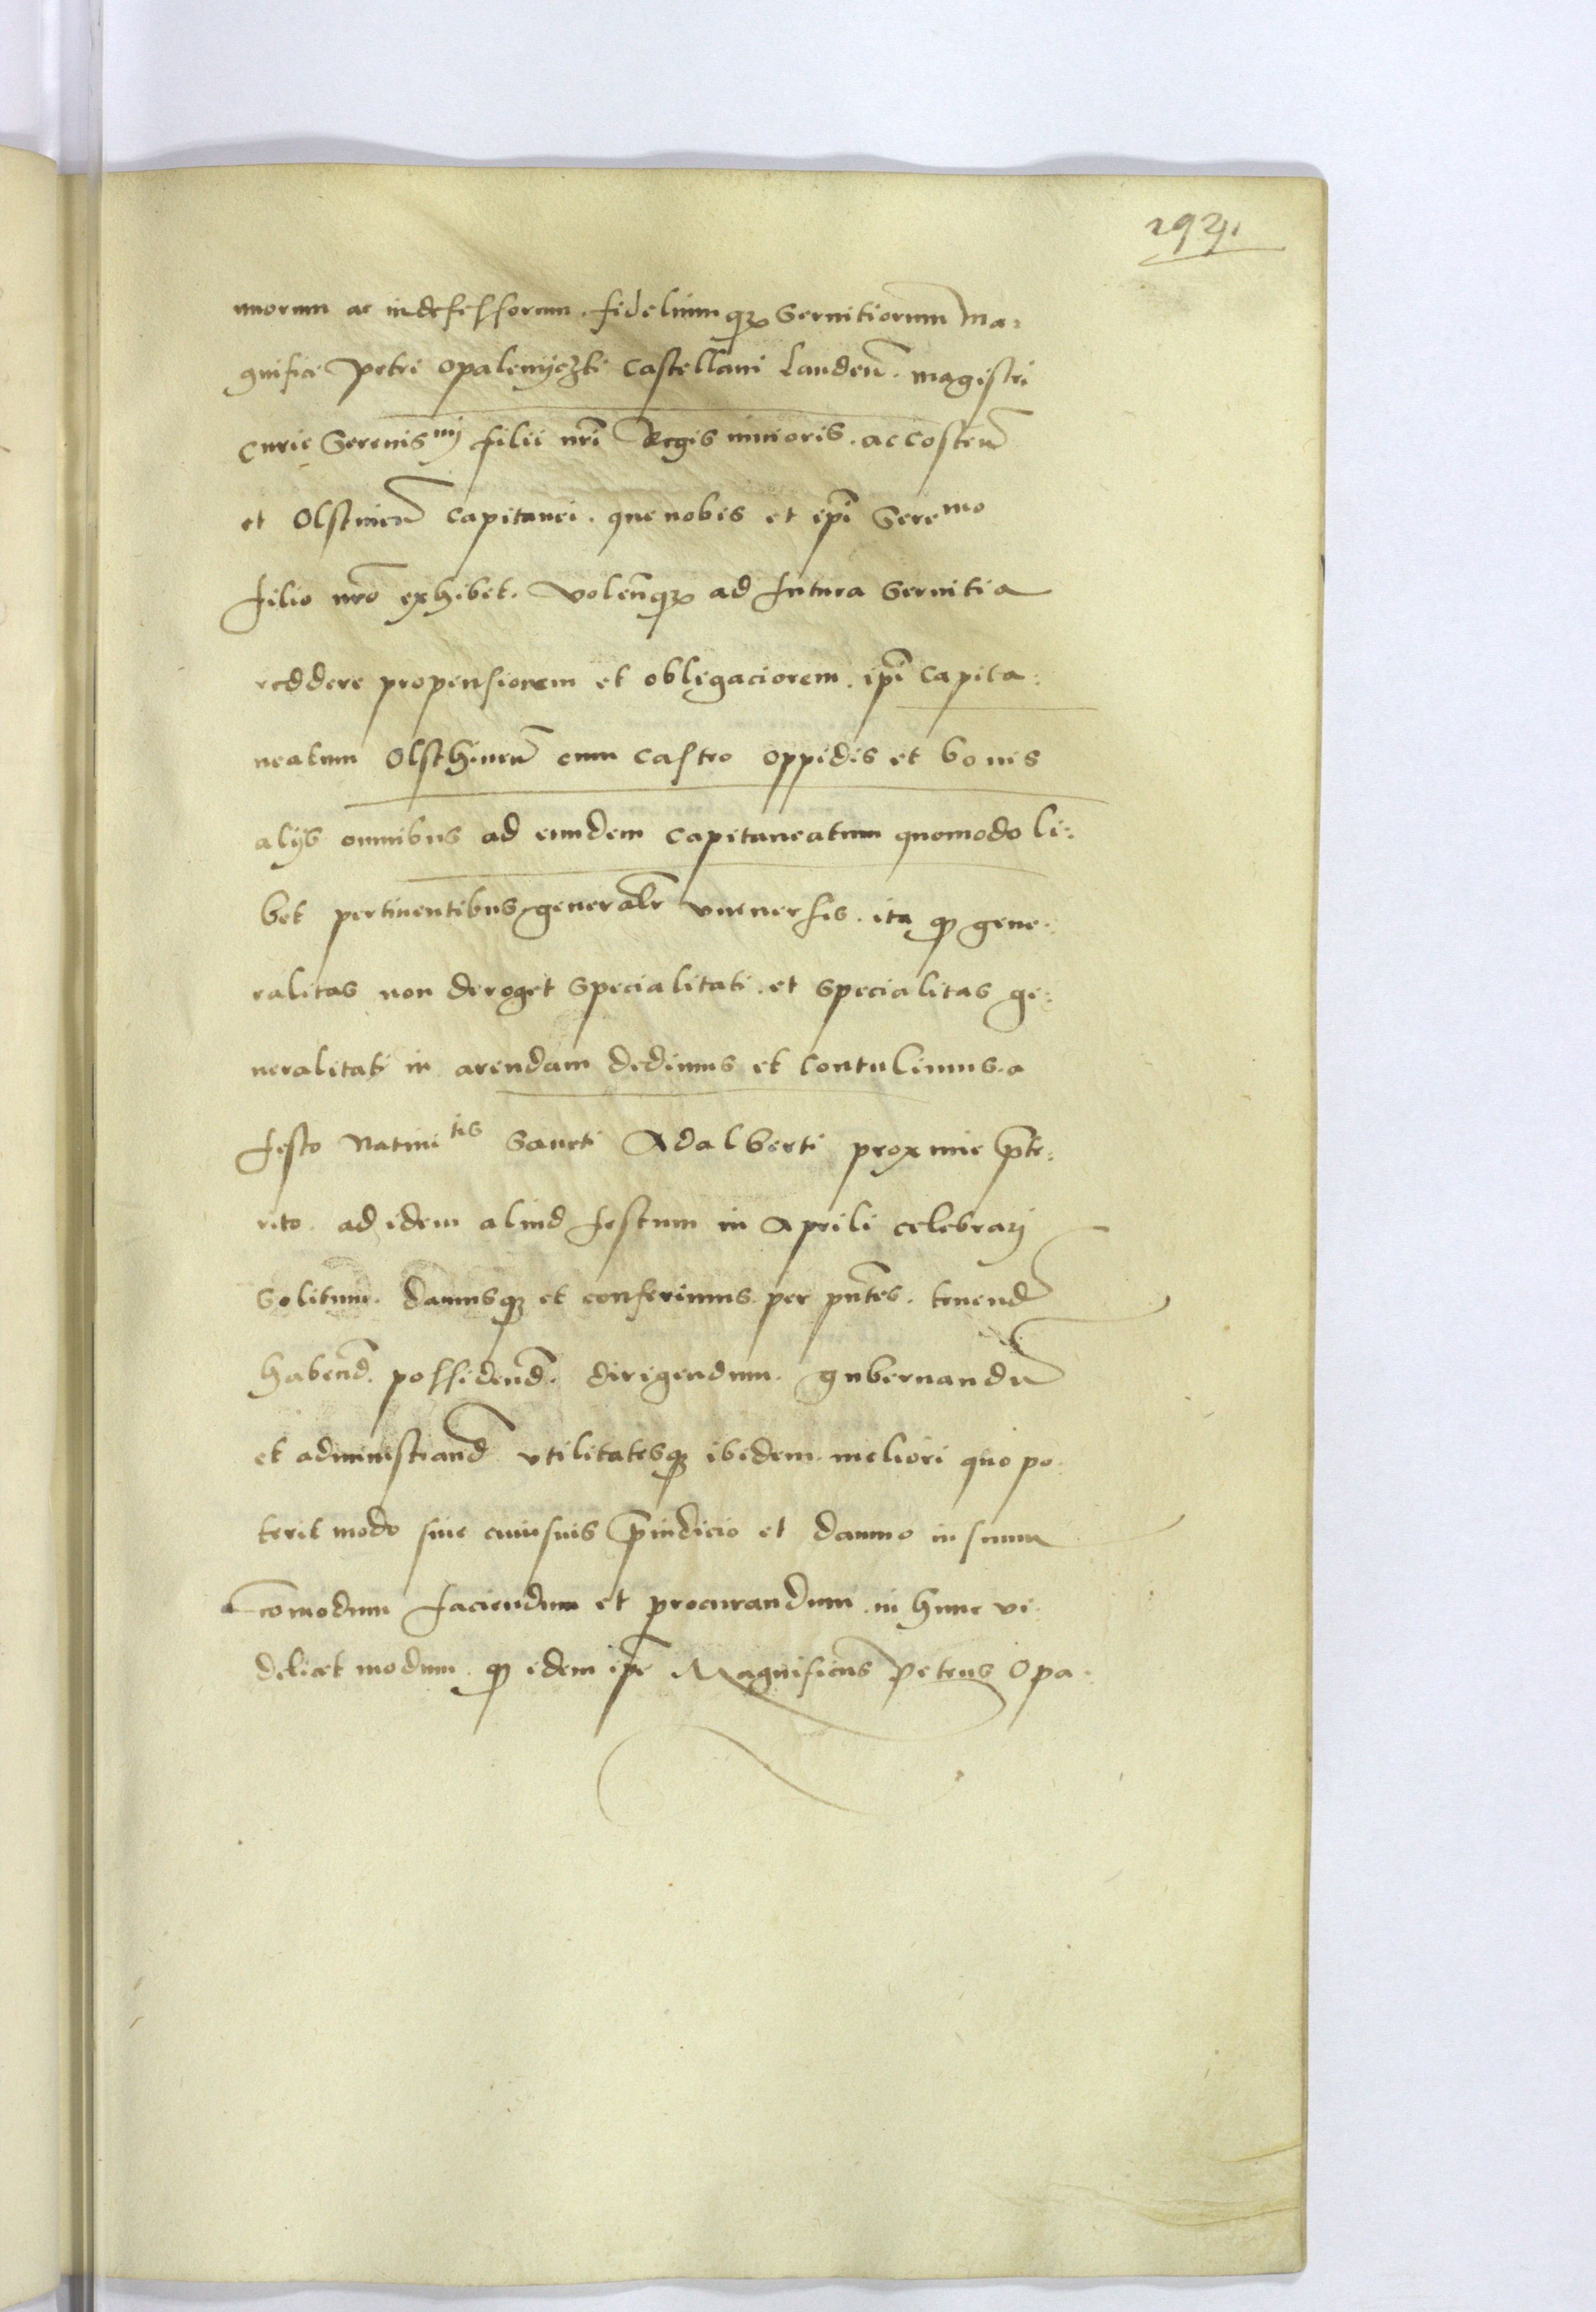 nuorum ac indefessorum. fidelium qȝ seruitiorum Ma:
gnifici Petri Opalenyczki Castellani Landeñ. magistri
curie Serenisᵐⁱ filii nr̃i Regis iunioris. ac Costeñ
et Olstineñ Capitanei. que nobis et ip̃i Sereᵐᵒ
filio nr̃o exhibet. Volenͥqȝ ad futura seruitia
reddere propensiorem et obligaciorem. ip̃i Capita:
neatum Olsthineñ cum Castro oppidis et bonis
alijs omnibus ad eundem Capitaneatum quomodo li:
bet pertinentibus generalr̃ vniuersis. ita qȝ gene:
ralitas non deroget specialitati. et specialitas ge:
neralitati in arendam dedimus et contulimus. a
festo Natiuiᵗⁱˢ Sancti Adalberti proxime p̃te:
rito. ad idem aliud festum in Aprili celebrarj
solitum. damusqȝ et conferimus. per pñtes. tenend̃
habend̃. possidend̃. dirigendum. gubernandũ
et administrand̃ vtilitatesqȝ ibidem. meliori quo po:
terit modo sine cuiusuis p̃iudicio et damno in suum
com̃odum faciendum et procurandum. in hunc vi:
delicet modum. qȝ idem ip̃e Magnificus Petrus Opa: